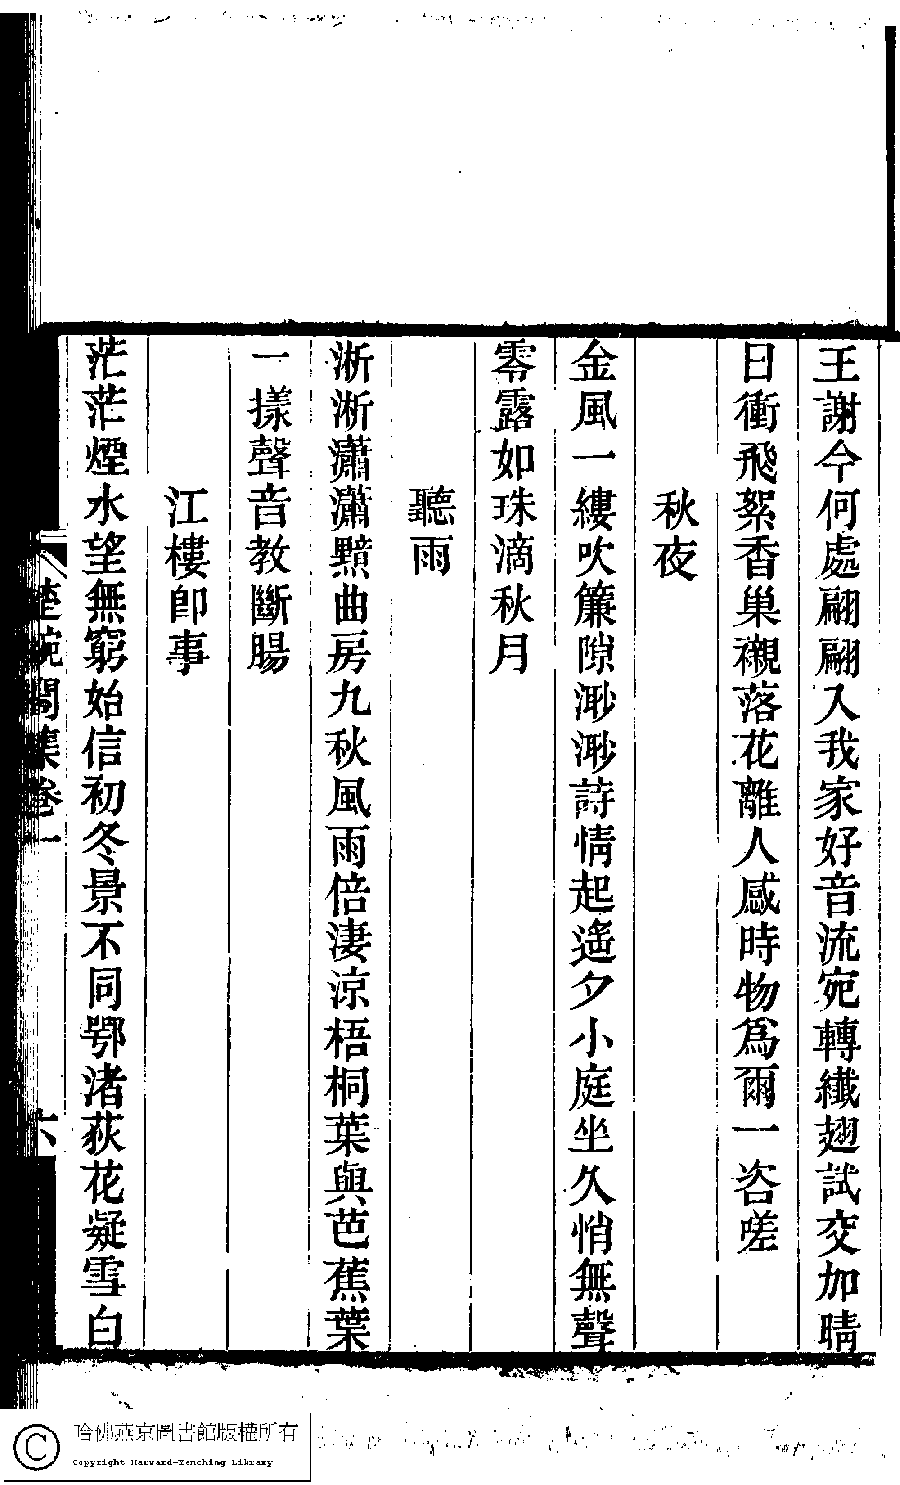 王謝今何處翩翩入我家好音流宛轉纖翅試交加晴
日衝飛絮香巢襯落花離人感時物爲爾一咨嗟
秋夜
金風一縷吹簾隙渺渺詩情起遙夕小庭坐久悄無聲
零露如珠滴秋月
聽雨
淅淅瀟瀟黯曲房九秋風雨倍淒涼梧桐葉與芭蕉葉
一樣聲音教斷腸
江樓卽事
茫茫煙水望無窮始信初冬景不同鄂渚荻花凝雪白
琬閣集卷一
六
哈佛燕京圖書館版權所有
Copyright Harvard-Yenching Library